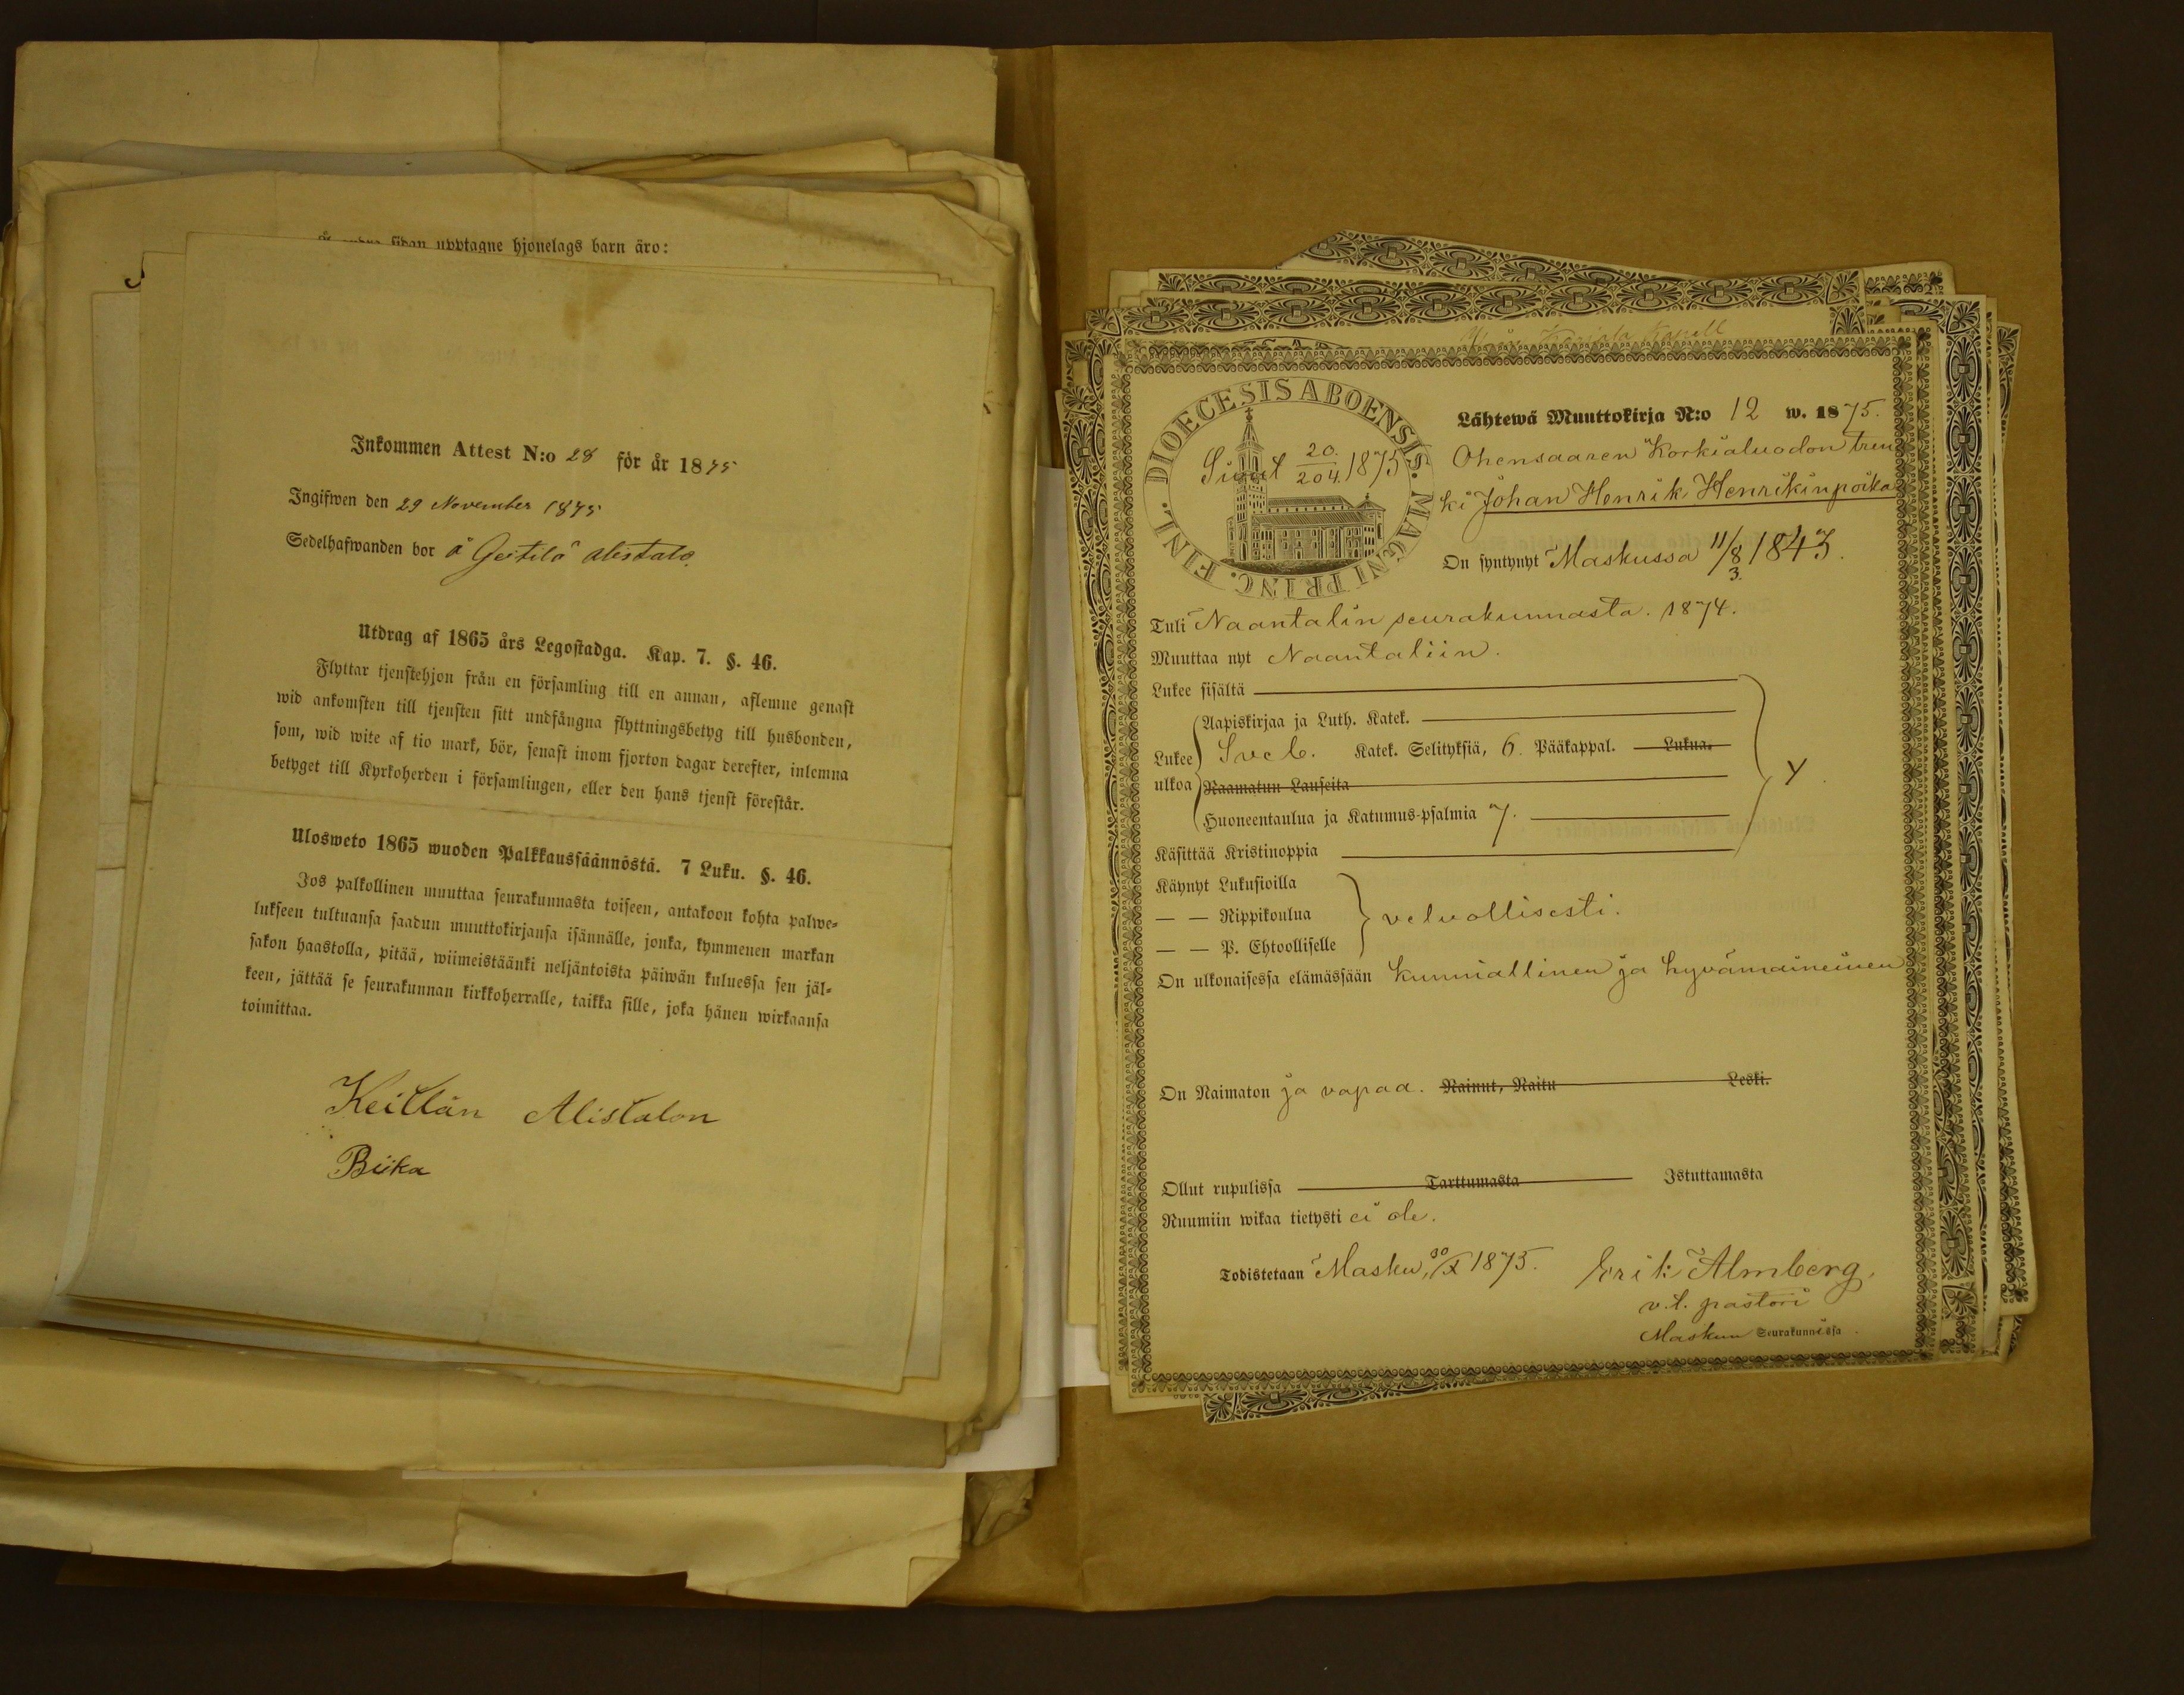 sidan upptagne hjonelags barn äro:
Inkommen Attest N:o 28 för år 1875
Ingifwen den 29 November 1875
Sedelhafwanden bor å Geitilä alistalo.
Utdrag af 1865 års Legostadga. Kap. 7. §. 46.
Flyttar tjenstehjon från en församling till en annan, aflemne genast
wid ankomsten till tjensten sitt undfångna flyttningsbetyg till husbonden,
som, wid wite af tio mark, bör, senast inom fjorton dagar derefter, inlemna
betyget till Kyrkoherden i församlingen, eller den hans tjenst förestår.
Ulosweto 1865 wuoden Palkkaussäännöstä. 7 Luku. §. 46.
Jos palkollinen muuttaa seurakunnasta toiseen, antakoon kohta palwe-
lukseen tultuansa saadun muuttokirjansa isännälle, jonka, kymmenen markan
sakon haastolla, pitää, wiimeistäänki neljäntoista päiwän kuluessa sen jäl-
keen, jättää se seurakunnan kirkkoherralle, taikka sille, joka hänen wirkaansa
toimittaa.
Keitlän Alistalon
Biika
DIOECESIS ABOENSIS. MAGNI PRINC. FINL.
Sivul 20./204. 1875
Lähtewä Muuttokirja N:o 12 w. 1875.
Ohensaaren Korkialuodon tren
ki Johan Henrik Henrikinpoika
On syntynyt Maskussa 11/8 1843.
3.
Tuli Naantalin seurakunnasta. 1874.
Muuttaa nyt Naantaliin.
Lukee sisältä
Lukee ulkoa
Aapiskirjaa ja Luth. Katek.
Sveb. Katek. Selityksiä, 6. Pääkappal. Lukua.
Raamatun Lauseita
Huoneentaulua ja Katumus-psalmia 7.
Y.
Käsittää Kristinoppia
Käynyt Lukusioilla
— — Rippikoulua velvollisesti.
— — P. Ehtoolliselle
On ulkonaisessa elämässään kunniallinen ja hyvämaineinen
On Naimaton ja vapaa. Nainut, Naitu Leski.
Ollut rupulissa Tarttumasta Istuttamasta
Ruumiin wikaa tietysti ei ole.
Todistetaan Masku, 30/X 1875. Erik Almberg,
v.t. pastori
Maskun Seurakunnissa.